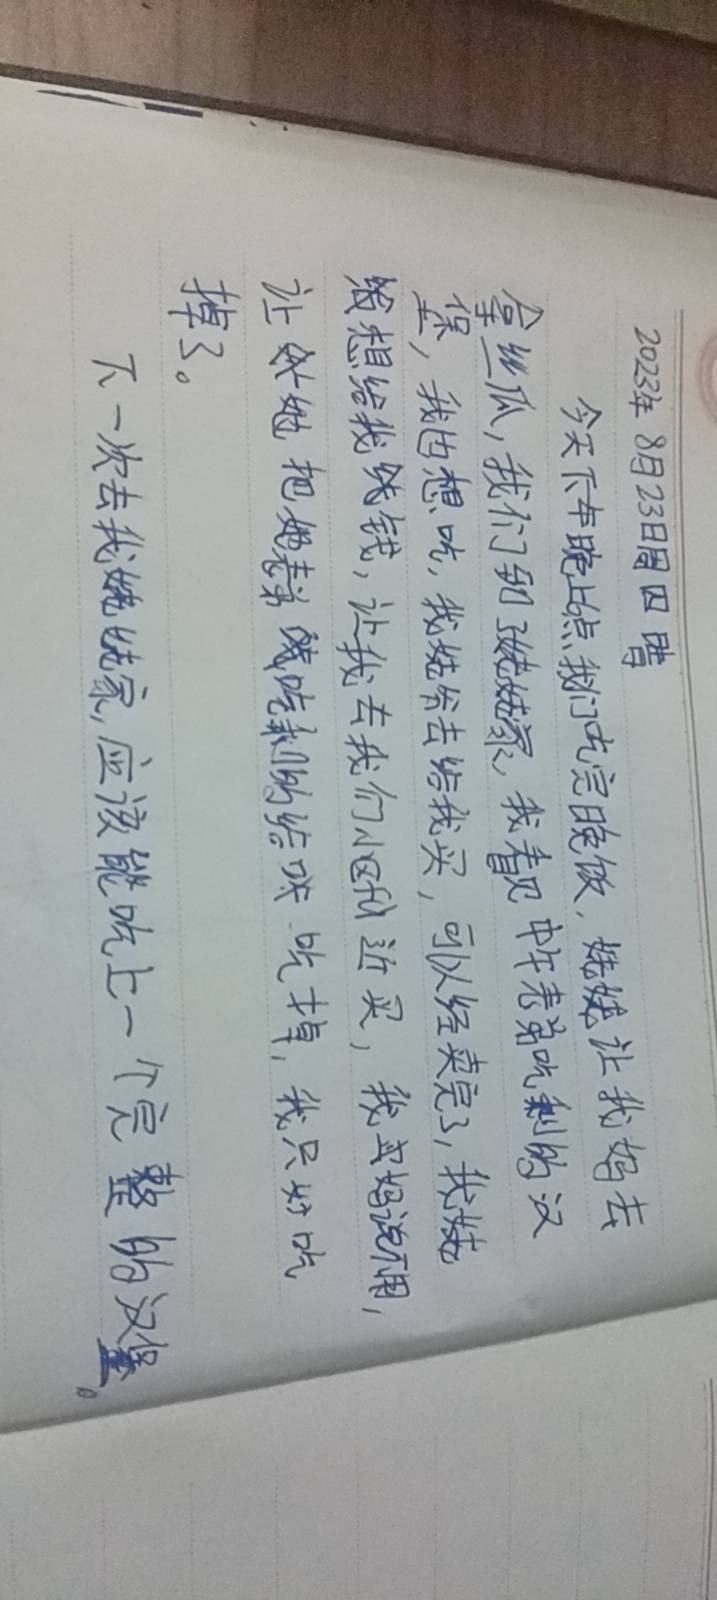 2023年8月23日周四 晴
今天下午晚上点我们吃完晚饭，姥姥让我妈去
拿丝瓜，我们到了姥姥家，我看见中午表弟吃剩的汉
堡，我也想吃，我姥爷去给我买，可以经卖完了，我姥
姥想给我钱，让我去我们小区附近买，我妈说不用，
让她把表弟吃剩的给我吃掉，我只好吃
掉了。
下一次去我姥姥家，应该能吃上一个完整的汉堡。